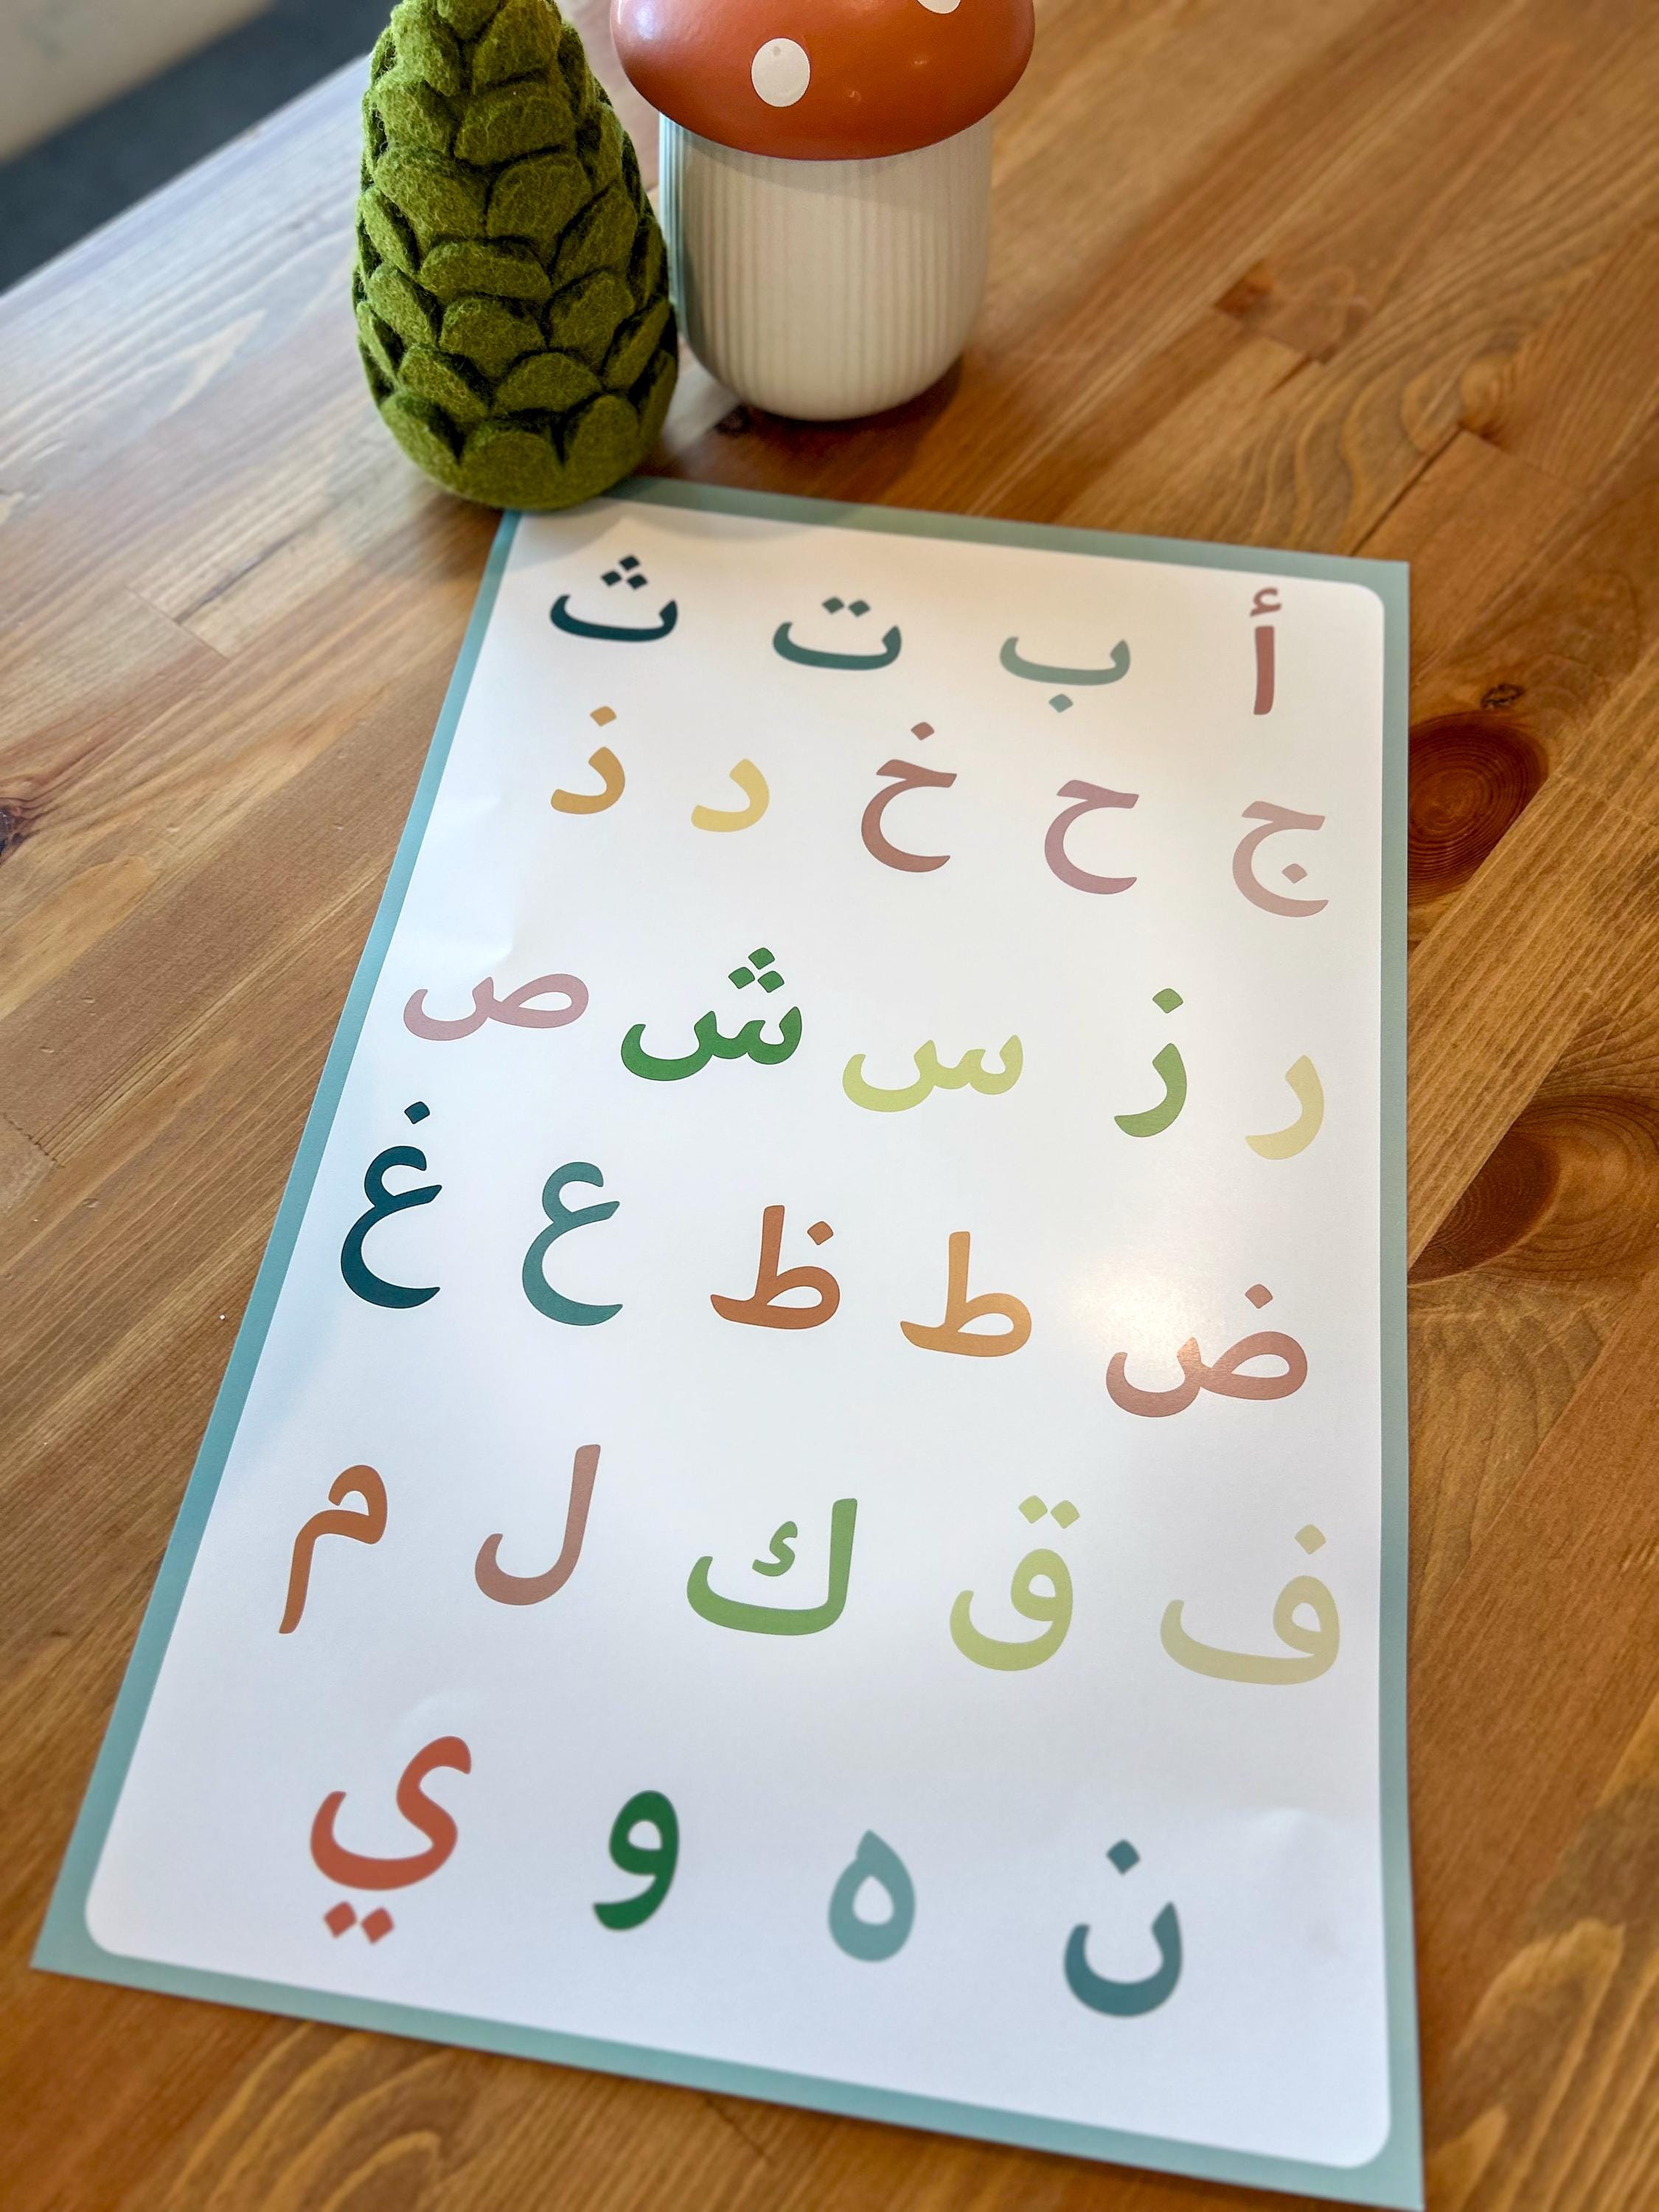 أ ب ت ث
ج ح خ د ذ
ر ز س ش ص
ض ط ظ ع غ
ف ق ك ل م
ن ه و ي